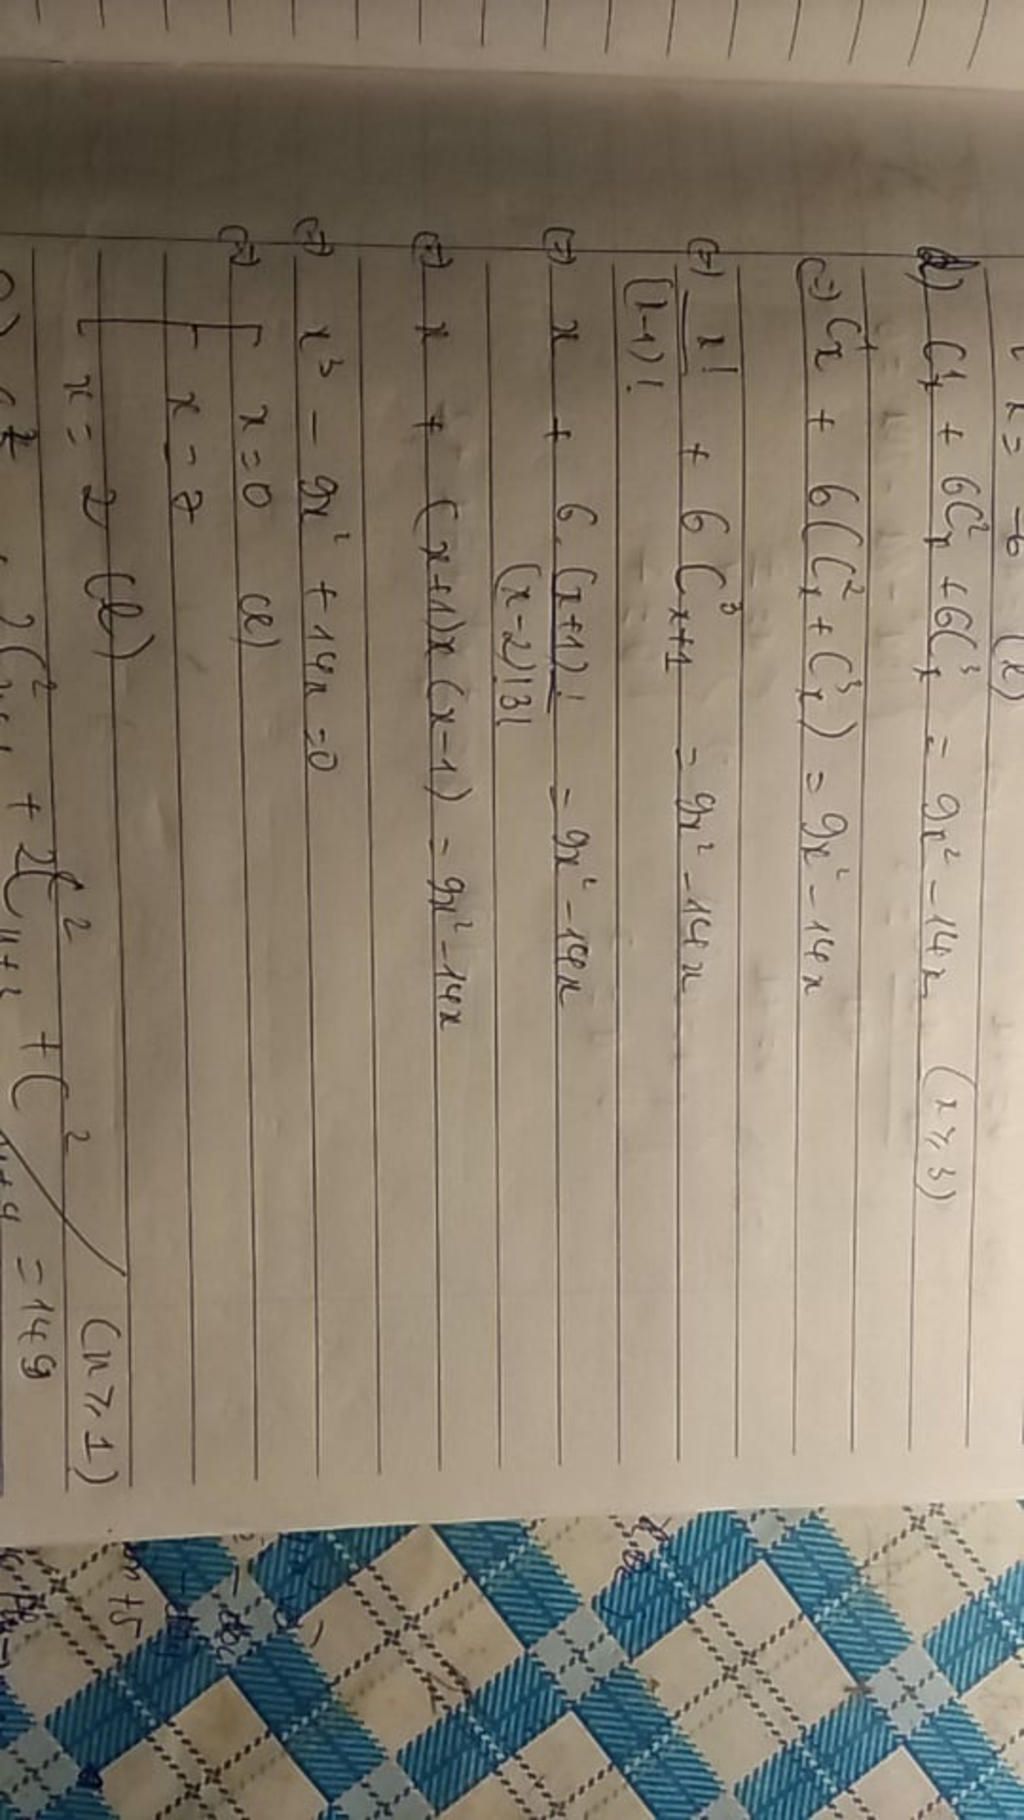 x = -6 (l)
d) C¹ₓ + 6C²ₓ + 6C³ₓ = 9x² - 14x (x ≥ 3)
(=) C¹ₓ + 6(C²ₓ + C³ₓ) = 9x² - 14x
(=) x!/(x-1)! + 6C³ₓ₊₁ = 9x² - 14x
(=) x + 6.(x+1)!/(x-2)!3! = 9x² - 14x
(=) x + (x+1)x(x-1) = 9x² - 14x
(=) x³ - 9x² + 14x = 0
(=) x = 0 (l)
x = 7
x = 2 (l)
(n ≥ 1)
+ C² = 149